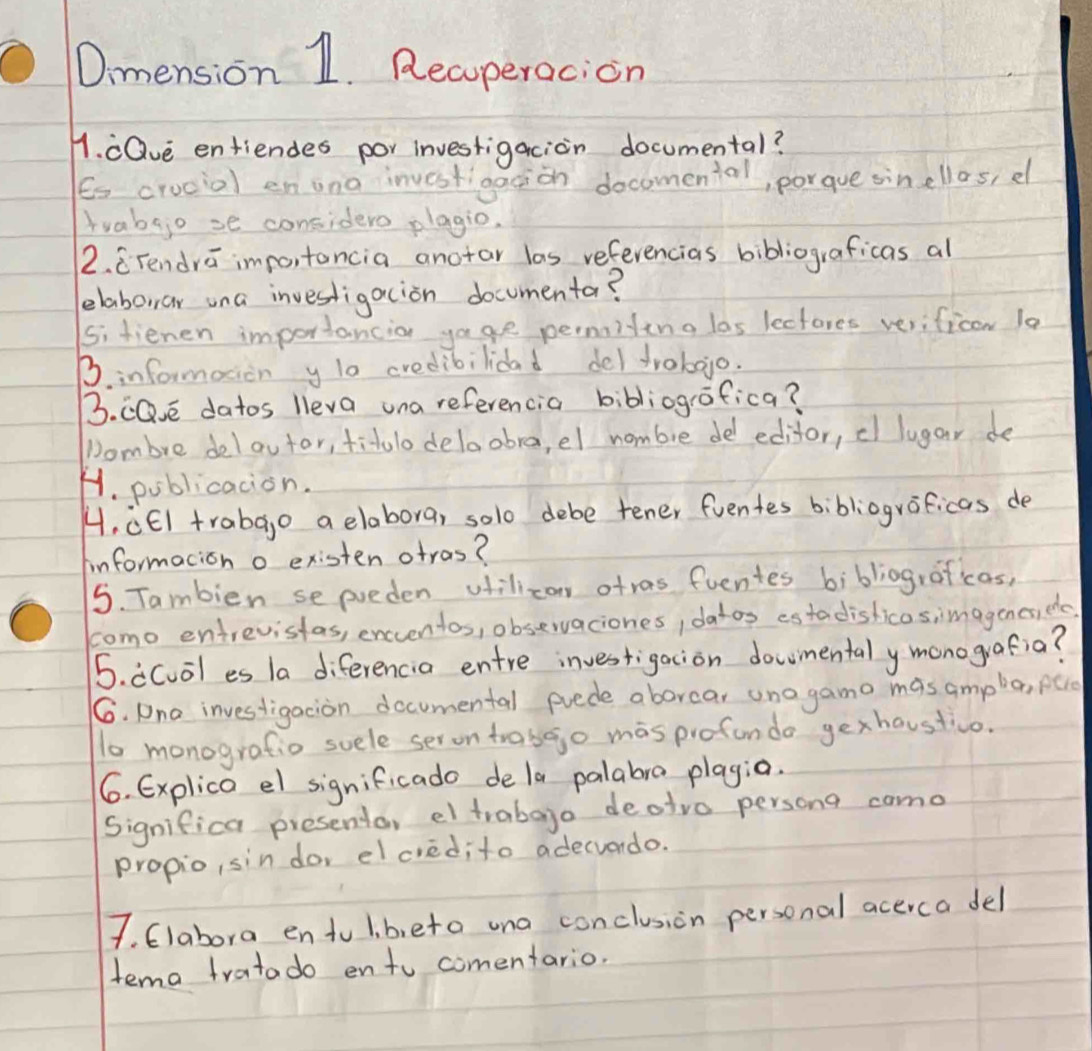 Dimensión 1. Recuperación
1. ¿Qué entiendes por investigación documental?
Es crucial en una investigación documental, porque sin ellas, el
trabajo se considera plagio.
2. ¿Tendrá importancia anotar las referencias bibliograficas al
elaborar una investigación documenta?
Si tienen importancia ya qe permiten a los lectores verificar la
3. información y la credibilidad del trabajo.
3. ¿Qué datos lleva una referencia bibliográfica?
Nombre del autor, titulo de la obra, el nombre del editor, el lugar de
4. publicación.
4. ¿El trabajo a elaborar solo debe tener fuentes bibliográficas de
información o existen otras?
5. Tambien se pueden utilizar otras fuentes bibliográficas,
como entrevistas, encuentos, observaciones, datos estadisticas, imagenes, etc.
5. ¿Cuál es la diferencia entre investigación documental y monografia?
6. Una investigación documental puede abarcar una gama mas amplia, pero
la monografia suele ser un trabajo más profundo y exhaustivo.
6. Explica el significado de la palabra plagio.
Significa presentar el trabajo de otra persona como
propio, sin dar el crédito adecuado.
7. Elabora en tu libreta una conclusión personal acerca del
tema tratado en tu comentario.